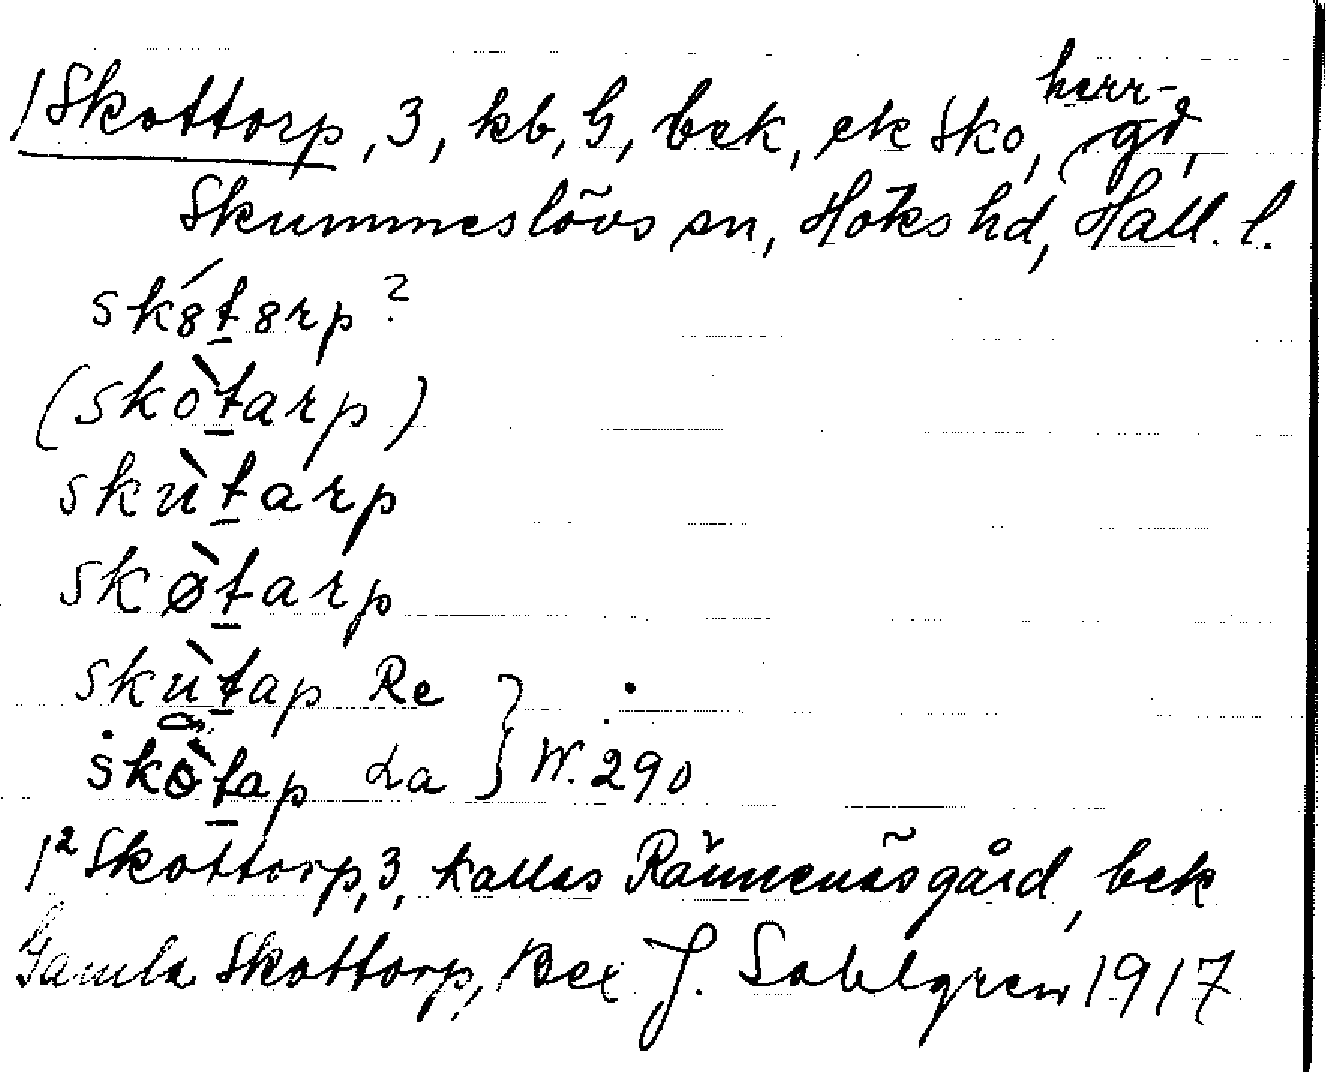 1 Skottorp, 3, kb, G, bek, ek Sko, herr-gd,
Skummeslövs sn, Höks hd, Hall. l.
sk8́t8rp?
(skòtarp)
skùtarp
skø̀tarp
skùtap Re
skòtap La } W. 290
1² Skottorp, 3, kallas Rännenäsgård, bek
Gamla Skottorp, Bex J. Sahlgren 1917